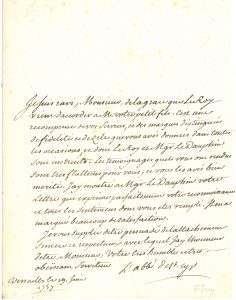 Je suis ravi, Monsieur, de la grace que Le Roy
vient d'accorder a M votre petit fils. c'est une
recompense de vos services, et des marques distinguées
de fidelité et de zele que vous avés données dans toutes
les occasions, et dont Le Roy et Mgr Le Dauphin
sont instruits. Les temoignages qu'ils vous ont rendus
sont tres flatteurs pour vous, et vous les avés bien
merités. J'ay montré a Mgr Le Dauphin votre
Lettre qui exprime parfaitement votre reconnoissance
et tous les sentimens dont vous etes rempli. Il en a
marqué beaucoup de satisfaction.
Je vous supplie d'etre persuadé de l'attachement
sincere et respectueux avec lequel J'ay l'honneur
d'etre, Monsieur, Votre tres humble et tres
obeissant serviteur
L'abbé de St Cyr
a Versailles le 19 Juin
1757